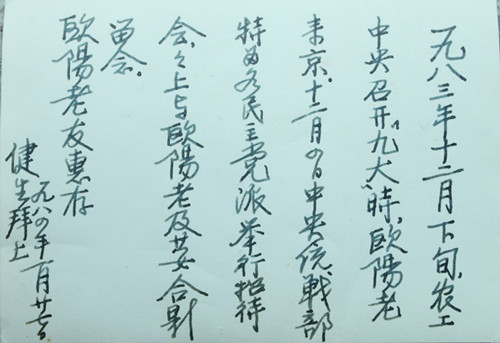 一九八三年十二月下旬,农工
中央召开"九大"時,歐陽老
来京,十二月 日中央统"戰部
特为各民主党派举行招待
会,会上与歐陽老及其女合影
留念.
歐陽老友惠存
健生拜上
一九八四年一月廿 日